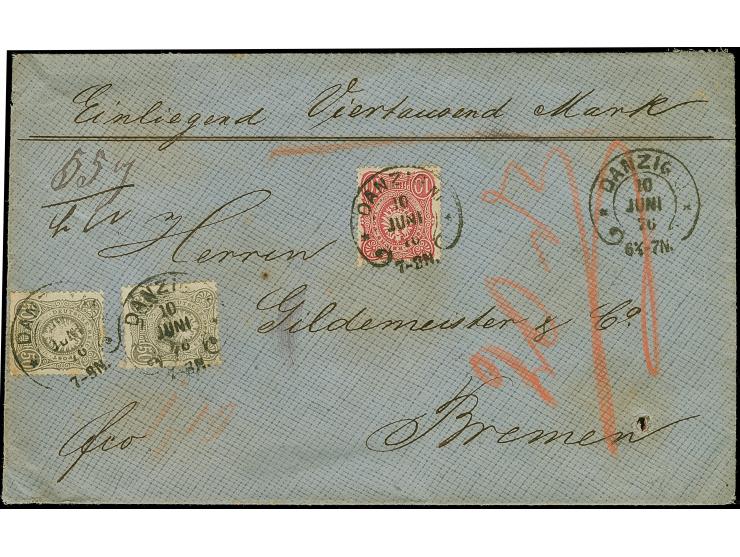 Einliegend Viertausend Mark
DANZIG
10
JUNI
76
6½-7N.
DANZIG
10
JUNI
76
7-8N.
Herren
Gildemeister & Co
DANZIG
10
JUNI
76
7-8N.
DAN
JUNI
76
7-8N.
fco
Bremen